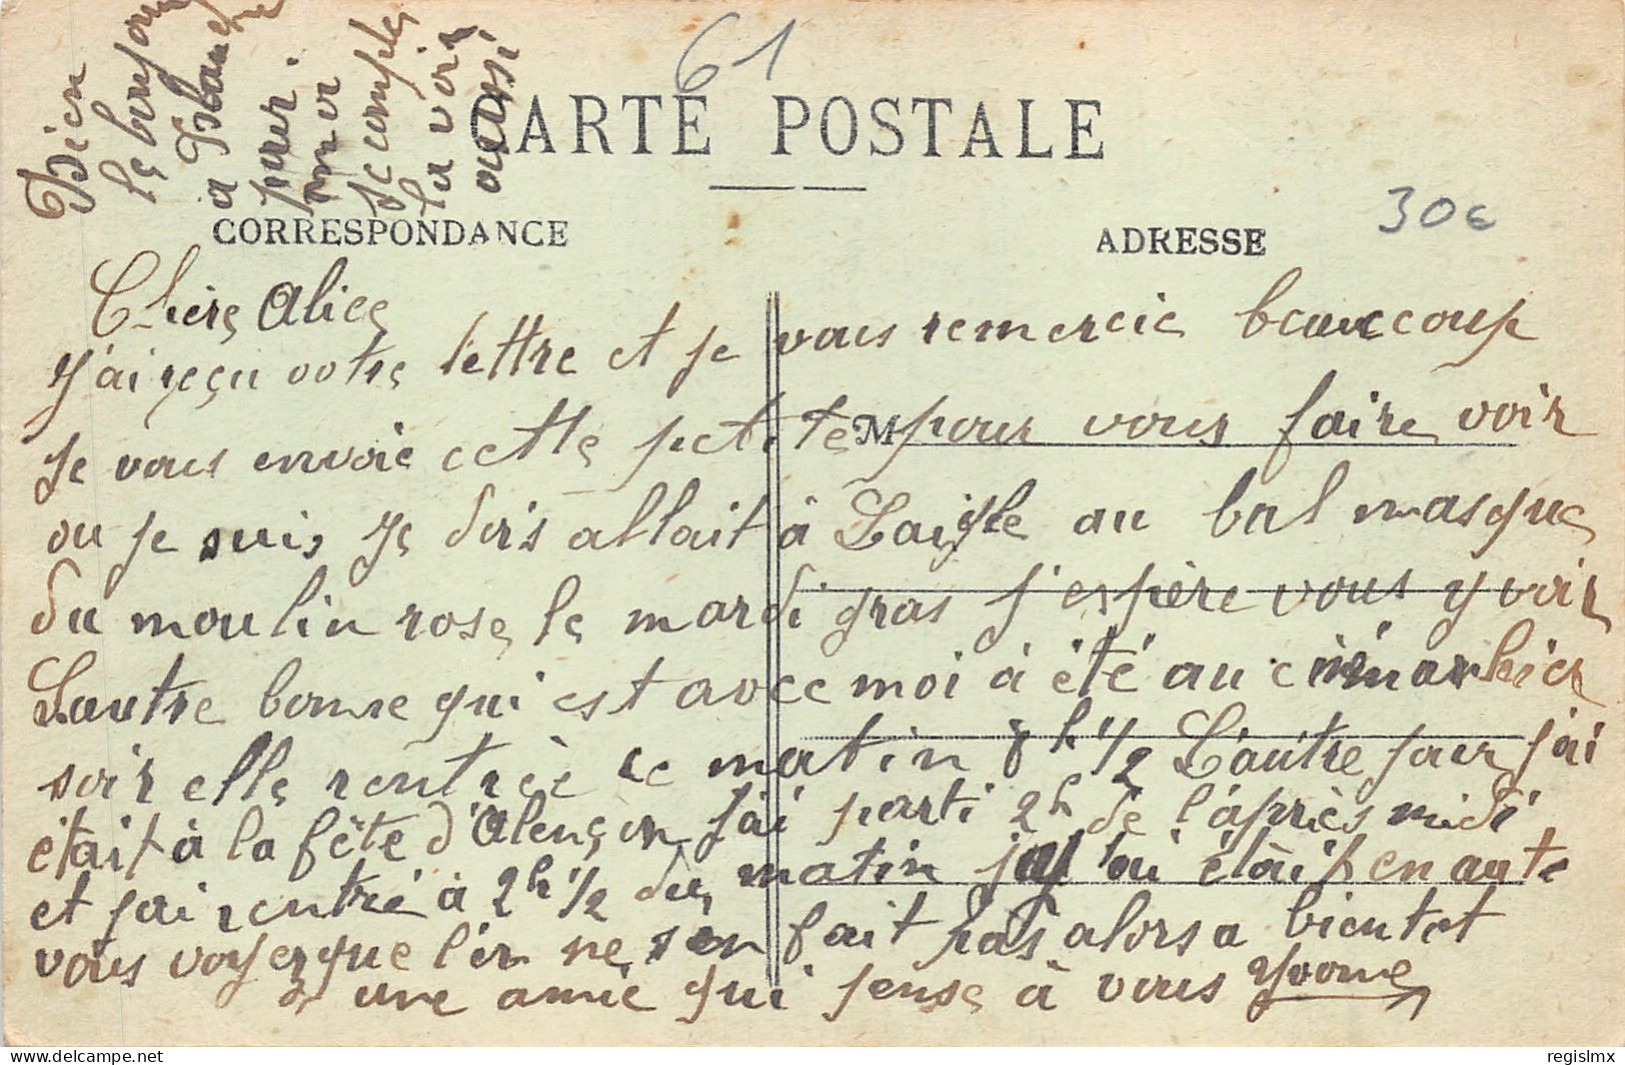 61
Bien
le bonjour
a Blanche
pour
moi
je compte
la voir
aussi
CARTE POSTALE
CORRESPONDANCE
ADRESSE
30€
Chère Alice
J'ai reçu votre lettre et je vous remercie beaucoup
Je vous envoie cette petite M pour vous faire voir
ou je suis Je dois allait à Laigle au bal masque
du moulin rose le mardi gras j'espère vous y voir
Lautre bonne qui est avec moi à été au cinéma hier
soir elle rentrée ce matin 8h 1/2 L'autre jour j'ai
était à la fête d'Alençon j'ai parti 2h de l'après midi
et j'ai rentré à 2h 1/2 du matin était en auto
vous voyer que l'on ne s'en fait pas alors a bientot
une amie qui pense à vous Yvonne
delcampe.net
regislmx